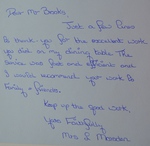 Dear Mr Banks
Just a few lines
to thank you for the excellent work
you did on my dining table. The
service was fast and efficient and
I would recommend your work to
Family & friends.
Keep up the good work
Yours Faithfully
Mrs S